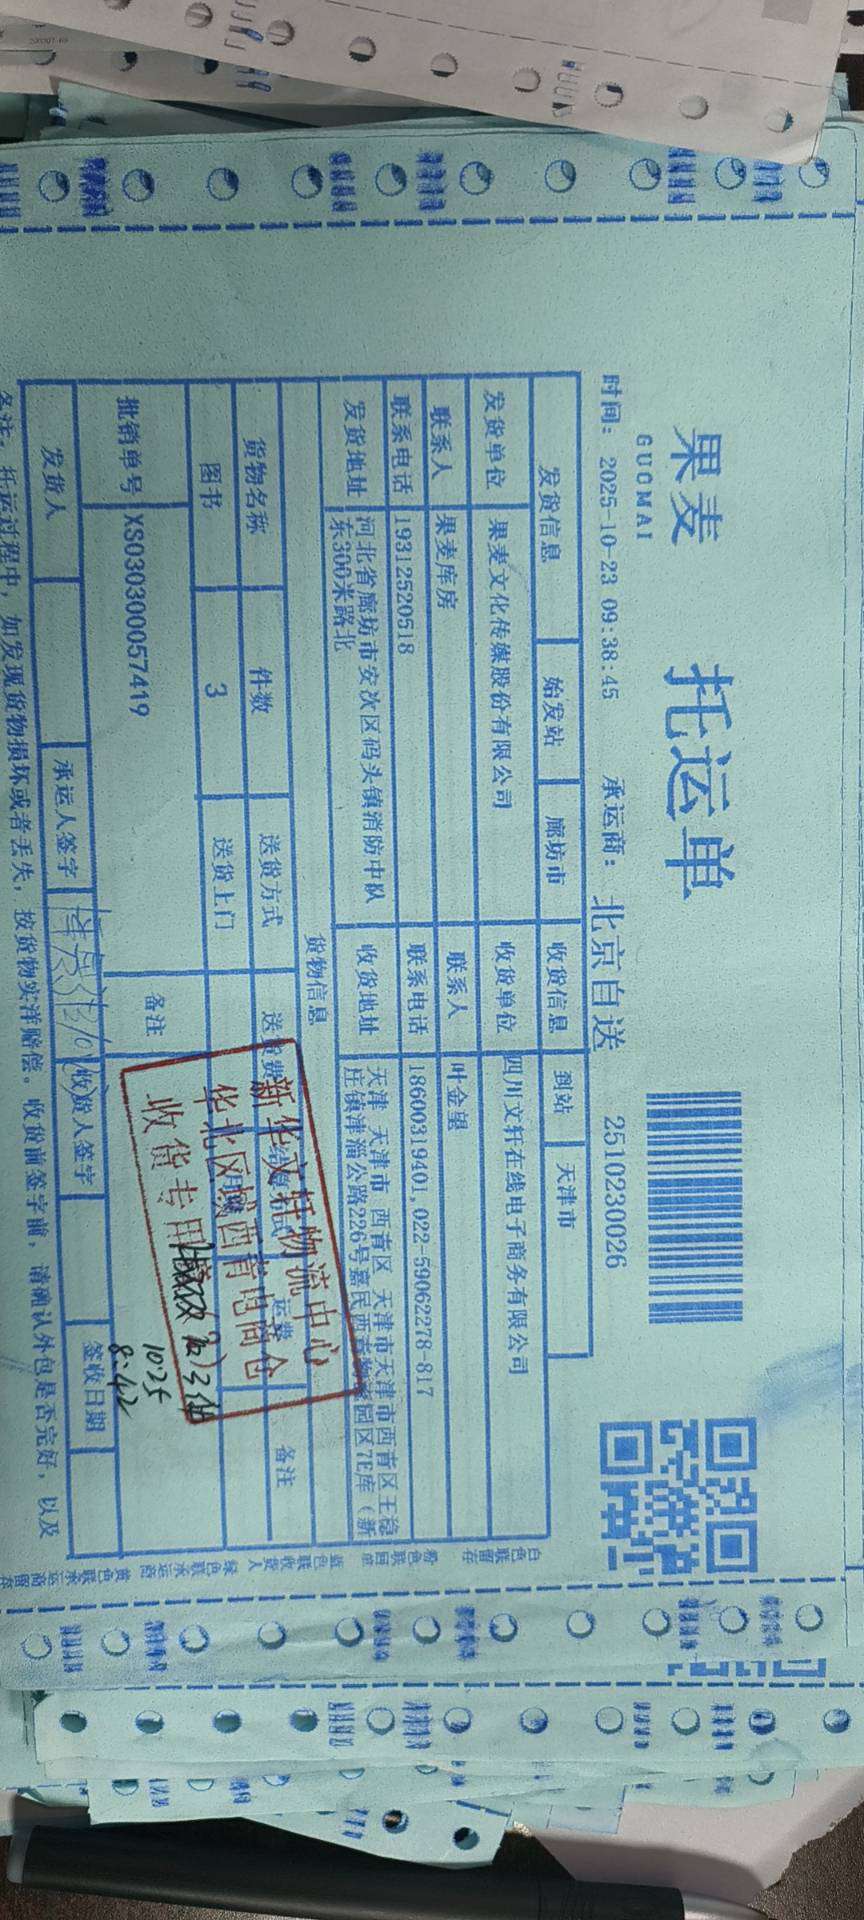 果麦
GUOMAI
托运单
时间: 2025-10-23 09:38:45 承运商: 北京自送 2510230026
发货信息 始发站 廊坊市 收货信息 到站 天津市
发货单位 果麦文化传媒股份有限公司 收货单位 四川文轩在线电子商务有限公司
联系人 果麦库房 联系人 叶金望
联系电话 19312520518 联系电话 18600319401,022-59062278-817
发货地址 河北省廊坊市安次区码头镇消防中队东300米路北 收货地址 天津 天津市 西青区 天津市天津市西青区王稳庄镇津淄公路226号嘉民西青物流园区7E库（新
货物信息
货物名称 件数 送货方式 送货费 运费 备注
图书 3 送货上门
批销单号 XS030300057419 备注
新华文轩物流中心
华北区域西青电商仓
收货专用章
10.25
8:42
发货人 承运人签字 收货人签字 签收日期
备注: 托运过程中, 如发现货物损坏或者丢失, 按货物实洋赔偿。收货前签字前, 请确认外包是否完好, 以及
白色联留存 粉色联回单 蓝色联收货人 绿色联承运商 黄色联承运商留存